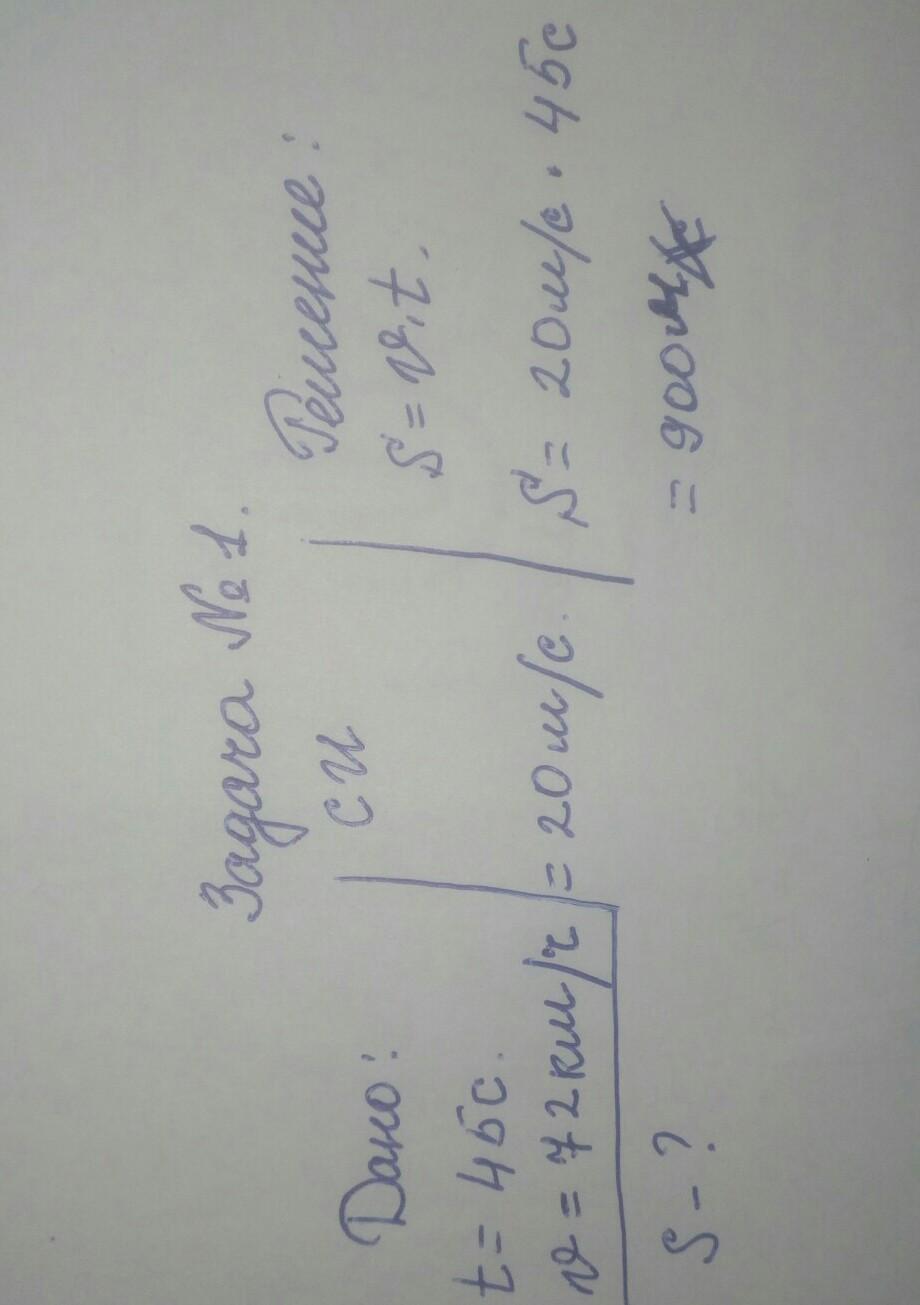 Задача № 1.
Дано:
t = 45с.
v = 72км/ч
S - ?
СИ
= 20м/с.
Решение:
S = v · t.
S = 20м/с · 45с
= 900м